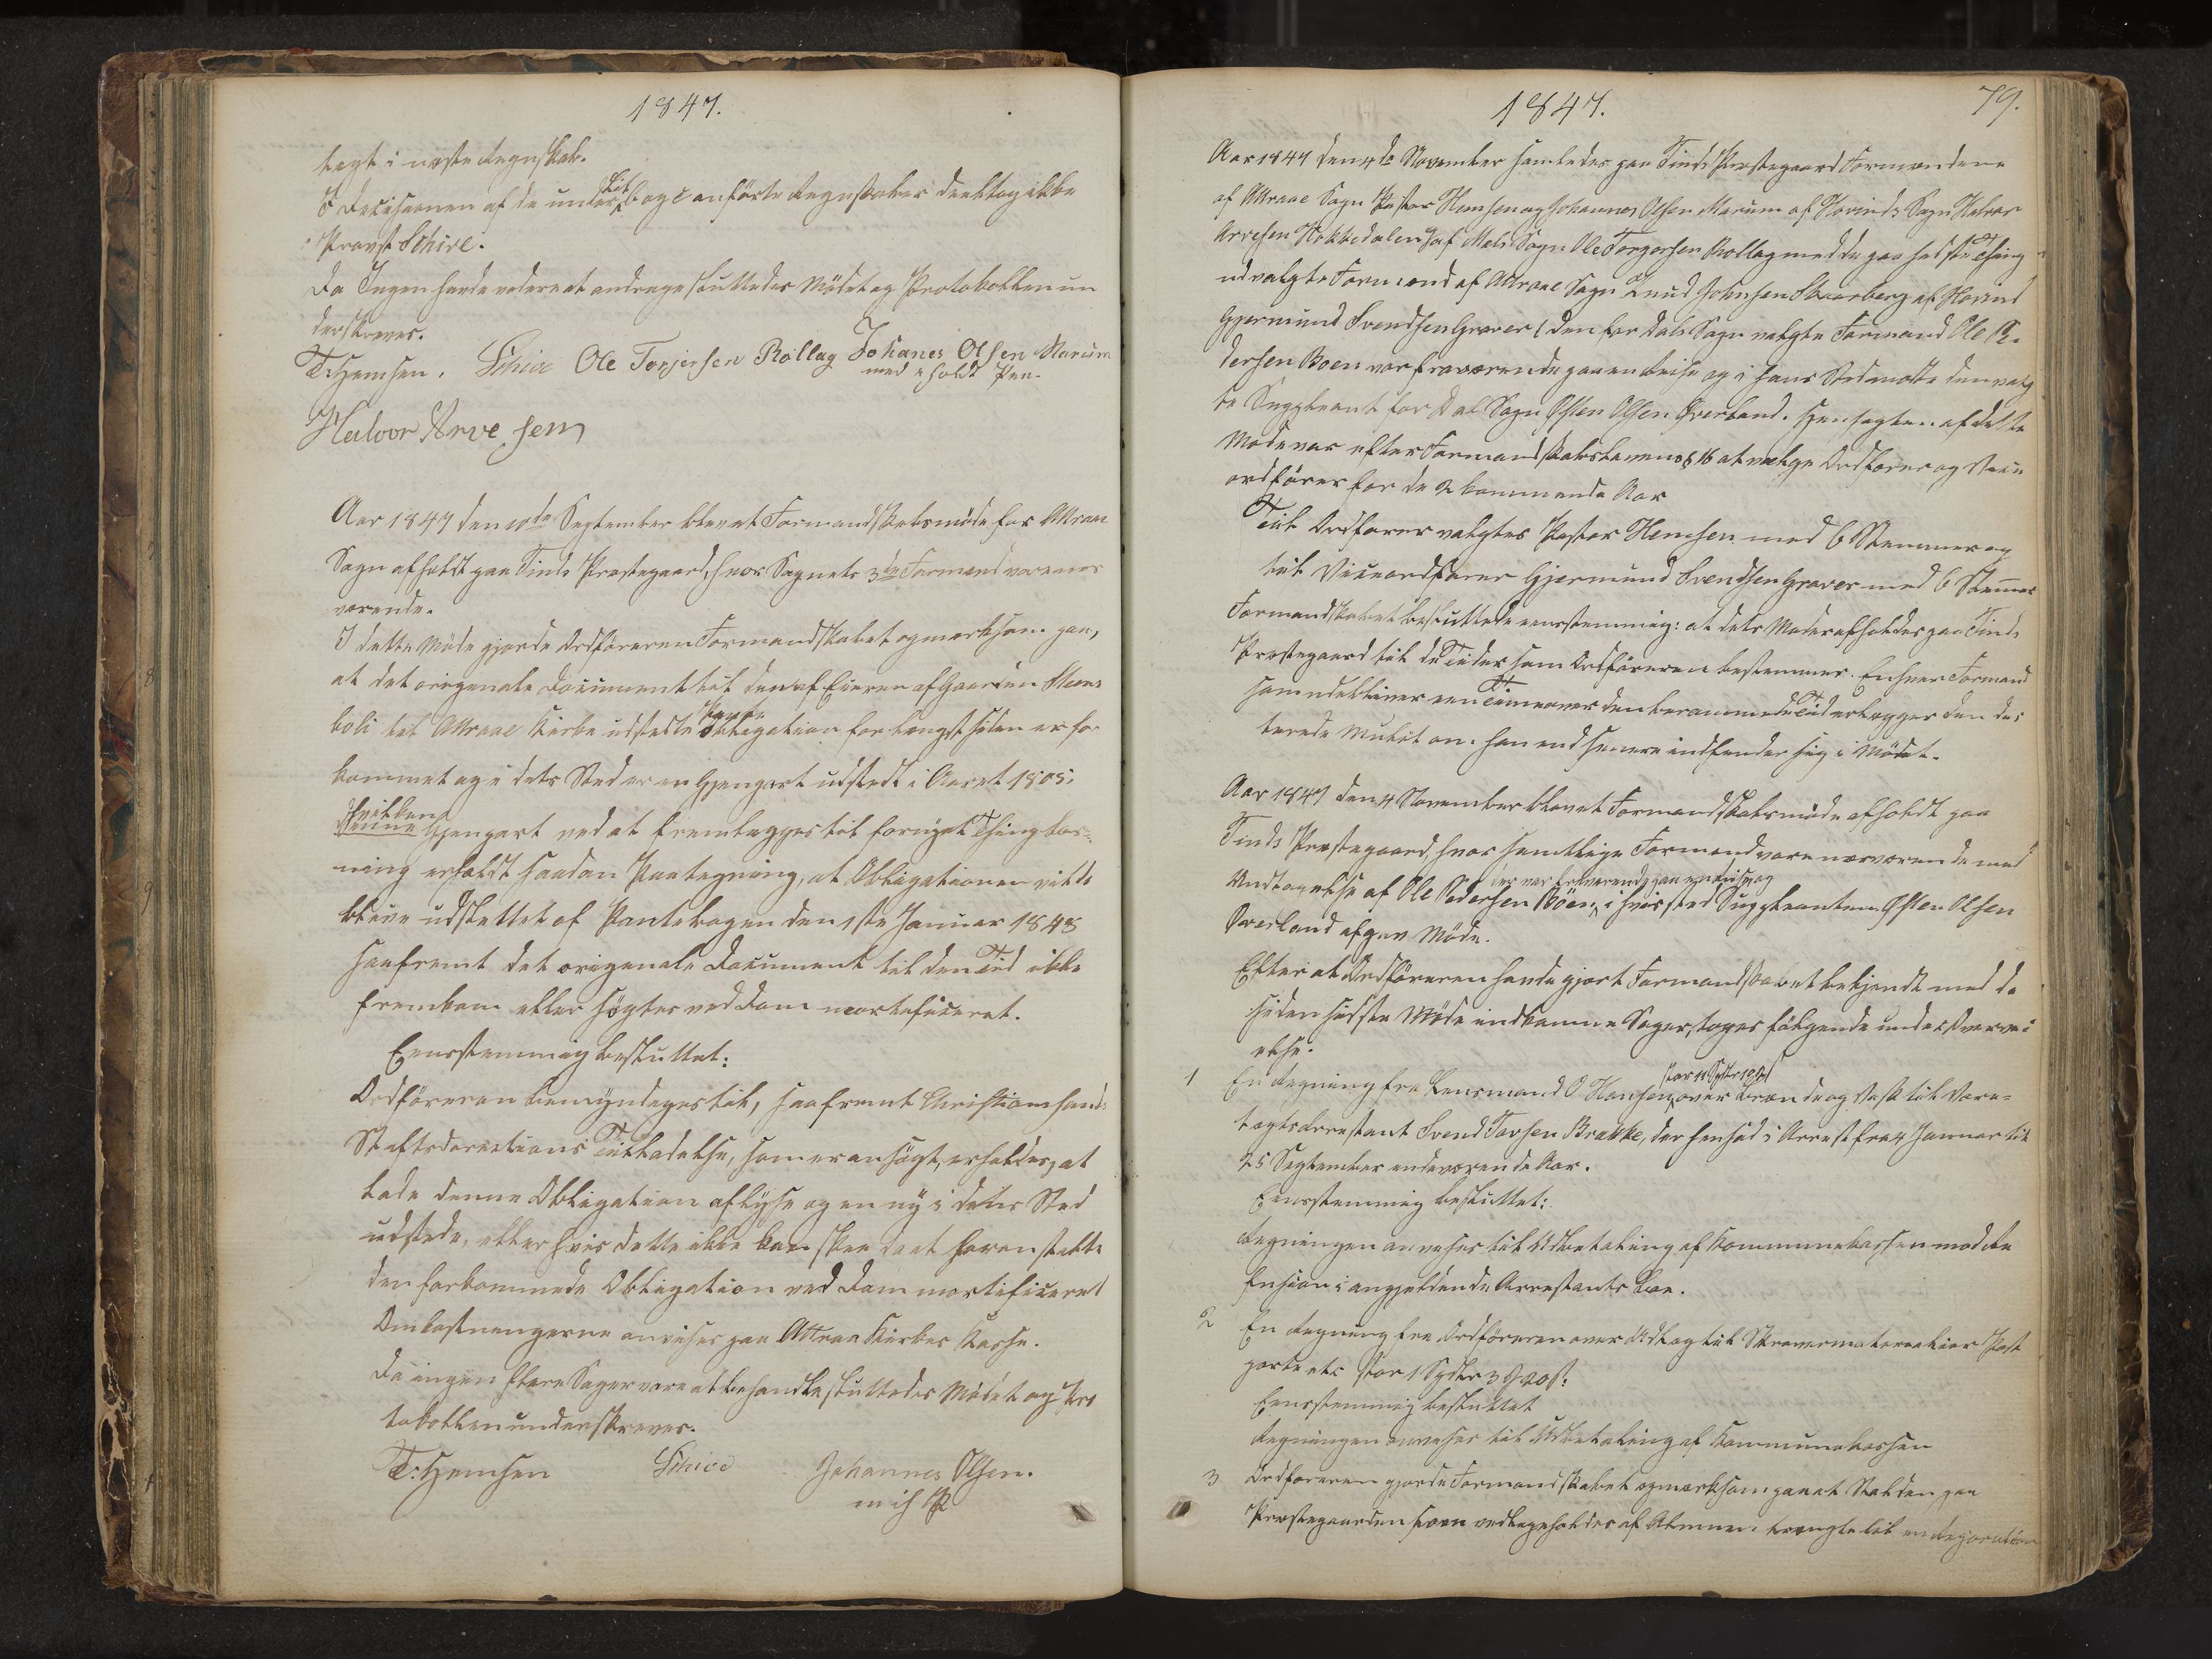 1847.
tagt i næste Regnskab.
I Decisionen af de under Lit b og c anførte Regnskaber deeltog ikke
Provst Schive.
Da Ingen havde videre at andrage sluttedes Mødet og Protokollen un
derskreves.
T. Hemsen. Schive Ole Torjersen Rollag Johanes Olsen Marum
med eholdt Pen.
Halvor Arvesen
Aar 1847 den 10de September blev et Formandskabsmøde for Attraae
Sogn afholdt paa Tinds Præstegaard, hvor Sognets 3de Formænd vare nær
værende.
I dette Møde gjorde Ordføreren Formandskabet opmærksom paa,
at det originale Document til den af Eieren af Gaarden
boli til Attraae Kirke udstedte Pante Obligation for længst siden er for
kommet og i dets Sted er en Gjenpart udstedt i Aaret 1805.
hvilken Gjenpart ved at fremlægges til fornyet Thinglæs-
ning erholdt saadan Paategning, at Obligationen vilde
blive udslettet af Pantebogen den 1ste Januar 1848
saafremt det originale Document til den Tid ikke
fremkom eller søgtes ved Dom mortificeret.
Eenstemmig besluttet:
Ordføreren bemyndiges til, saafremt Christiansands
Stiftsdirections Tilladelse, som er ansøgt, erholdes, at
lade denne Obligation aflyse og en ny i dets Sted
udstede, eller hvis dette ikke kan skee da at foranstalte
den forkommede Obligation ved Dom mortificeret
Omkostningerne anvises paa Attraa Kirkes Kasse.
Da ingen flere Sager vare at behandle, sluttedes Mødet og Pro
tokollen underskreves.
T. Hemsen Schive Johannes Olsen.
m i P
1847.
79.
Aar 1847 den 4de November samledes paa Tinds Præstegaard Formændene
af Attraae Sogn Pastor Hemsen og Johannes Olsen Marum af Hovinds Sogn Halvor
Arvesen Kokkedalen og af Mæls Sogn Ole Torgersen Rollag med de paa sidste Thing
udvalgte Formænd af Attraae Sogn Knud Johnsen Skaarberg af Hovind
Gjermund Svendsen Graver (den for Dals Sogn valgte Formand Ole Pe
dersen Boen var fraværende paa en Reise og i hans Sted mødte den valg
te Suppleant for Dal Sogn Østen Olsen Øverland. Hensigten af dette
Møde var efter Formandskabslovens § 16 at vælge Ordfører og Vice
ordfører for de 2 kommende Aar
Til Ordfører valgtes Pastor Hemsen med 6 Stemmer og
til Viceordfører Gjermund Svendsen Graver med 6 Stemmer
Formandskabet besluttede eenstemmig: at dets Møder afholdes paa Tinds
Præstegaard til de Tider som Ordføreren bestemmer. Enhver Formand
som udebliver een Time over den berammede Tid erlægger den dic
terede Mulct om han end senere indfinder sig i Mødet.
Aar 1847 den 4 November blev et Formandskabsmøde afholdt paa
Tinds Præstegaard, hvor samtlige Formænd vare nærværende med
Undtagelse af Ole Pedersen Böen, der var fraværende paa en Reise og i hvis Sted Suppleanten Østen Olsen
Øverland afgav Møde.
Efter at Ordføreren havde gjort Formandskabet bekjendt med de
siden sidste Møde indkomne Sager, toges følgende under Overvei
else.
1 En Regning fra Lensmand O Hansen, over Brænde og Vask til Vare-
tægtsarrestant Svend Torsen Brække, der hensad i Arrest fra 4 Januar til
25 September indeværende Aar.
Eenstemmig besluttet:
Regningen anvises til Udbetaling af Kommunekassen mod Re
fusion i angjeldende Arrestants Boe.
2 En Regning fra Ordføreren over Udlæg til Skrivematerialier Post
porto etc stor 1 Spdlr 3 20 s:
Eenstemmig besluttet
Regningen anvises til Udbetaling af Kommunekassen
3 Ordføreren gjorde Formandskabet opmærksom paa at Stalden paa
Præstegaarden som vedligeholdes af Almuen trængte til en Reparation